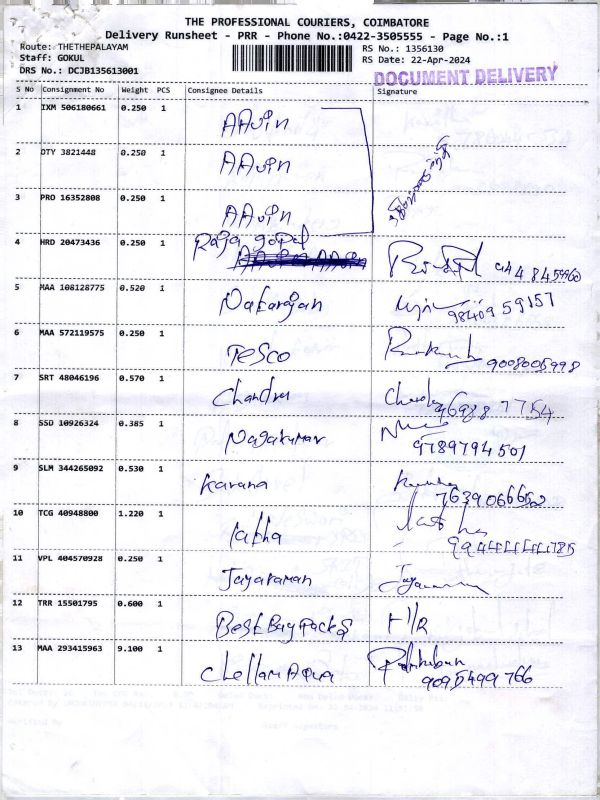 THE PROFESSIONAL COURIERS, COIMBATORE
Delivery Runsheet - PRR - Phone No.:0422-3505555 - Page No.:1
Route: THETHEPALAYAM RS No.: 1356130
Staff: GOKUL RS Date: 22-Apr-2024
DRS No.: DCJB135613001 DOCUMENT DELIVERY
S No Consignment No Weight PCS Consignee Details Signature
1 IXM 506180661 0.250 1 AAVIN
2 DTY 3821448 0.250 1 AAVIN
3 PRO 16352808 0.250 1 AAVIN
4 HRD 20473436 0.250 1 Raja gopal
5 MAA 108128775 0.520 1 Natarajan 98409 59157
6 MAA 572119575 0.250 1 TESCO 9008005998
7 SRT 48046196 0.570 1 Chandra
8 SSD 10926324 0.385 1 Nagakumar 9789794501
9 SLM 344265092 0.530 1 Karuna 7639066652
10 TCG 40948800 1.220 1 latha latha
11 VPL 404570928 0.250 1 Jayaraman
12 TRR 15501795 0.600 1 Best Bay Packs
13 MAA 293415963 9.100 1 Chellam Aqua 9095499766